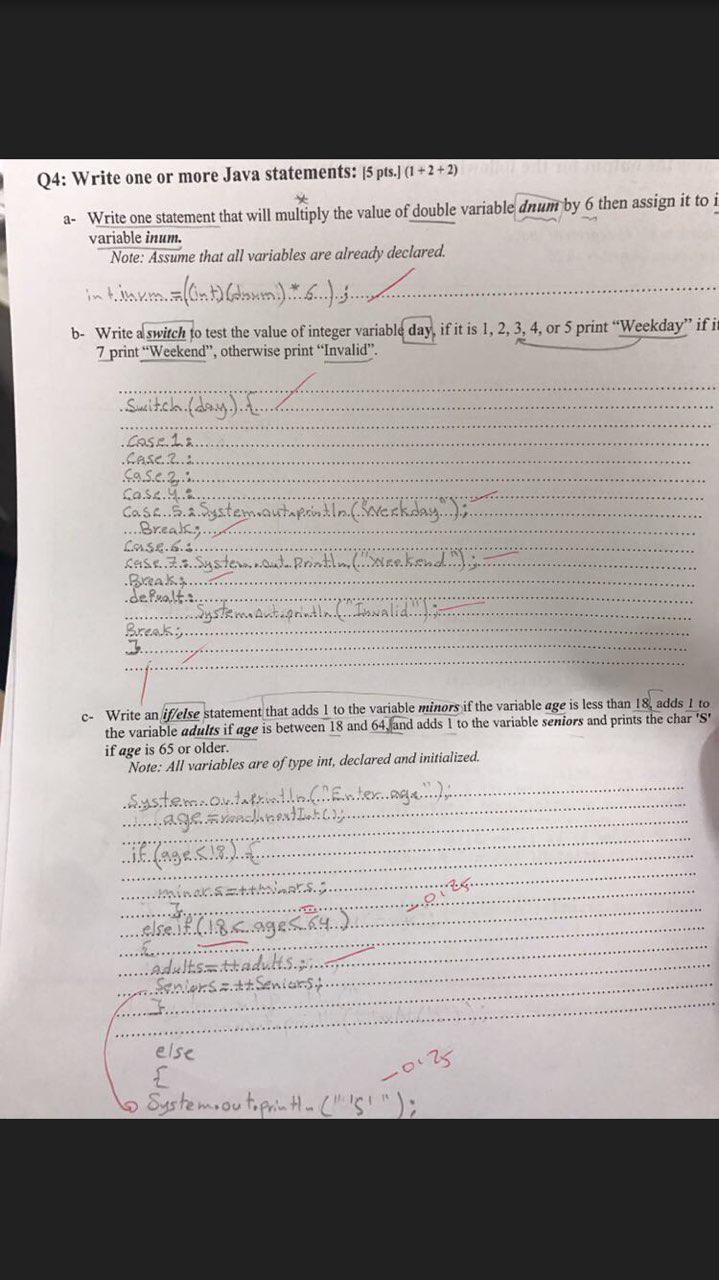 Q4: Write one or more Java statements: [5 pts.] (1+2+2)
*
a- Write one statement that will multiply the value of double variable dnum by 6 then assign it to i
variable inum.
Note: Assume that all variables are already declared.
int inum =((int)(dnum) * 6 );
b- Write a switch to test the value of integer variable day, if it is 1, 2, 3, 4, or 5 print “Weekday” if it
7 print “Weekend”, otherwise print “Invalid”.
Switch (day) {
Case 1:
Case 2:
Case 3:
Case 4:
Case 5: System.out.println("Weekday");
Break;
Case 6:
Case 7: System.out.println("Weekend");
Break;
defualt:
System.out.println("Invalid");
Break;
}
c- Write an if/else statement that adds 1 to the variable minors if the variable age is less than 18, adds 1 to
the variable adults if age is between 18 and 64, and adds 1 to the variable seniors and prints the char 'S'
if age is 65 or older.
Note: All variables are of type int, declared and initialized.
System.out.println("Enter age");
age = read.nextInt();
if (age<18) {
minors=++minors;
}
-0.25
else if (18 < age < 64)
{
adults=++adults;
Seniors=++Seniors;
}
else
{
-0.25
System.out.println("'S'");